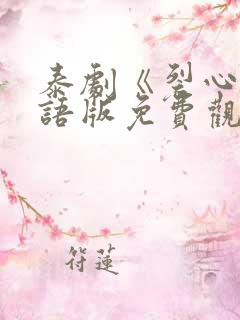 泰劇《烈心
語版免費觀
符蓮